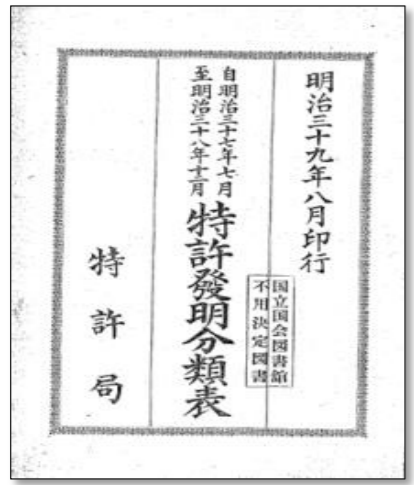 明治三十九年八月印行
自明治三十七年七月
至明治三十八年十二月
特許發明分類表
国立国会図書館
不用決定図書
特許局